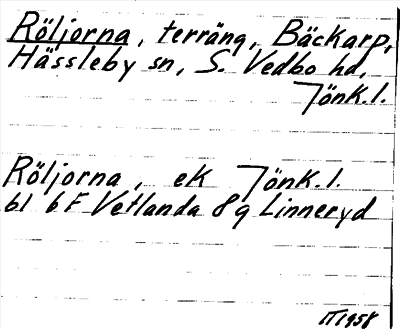 Röljorna, terräng, Bäckarp,
Hässleby sn, S. Vedbo hd,
Jönk.l.
Röljorna, ek Jönk.l.
bl 6F Vetlanda 8g Linneryd
IT1958